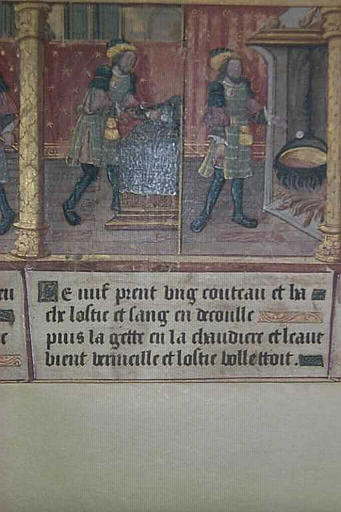 Le iuif prent vng couteau et ha
che lostie et sang en decoulle
puis la gette en la chaudiere et leaue
vient vermeille et lostie vollettoit.